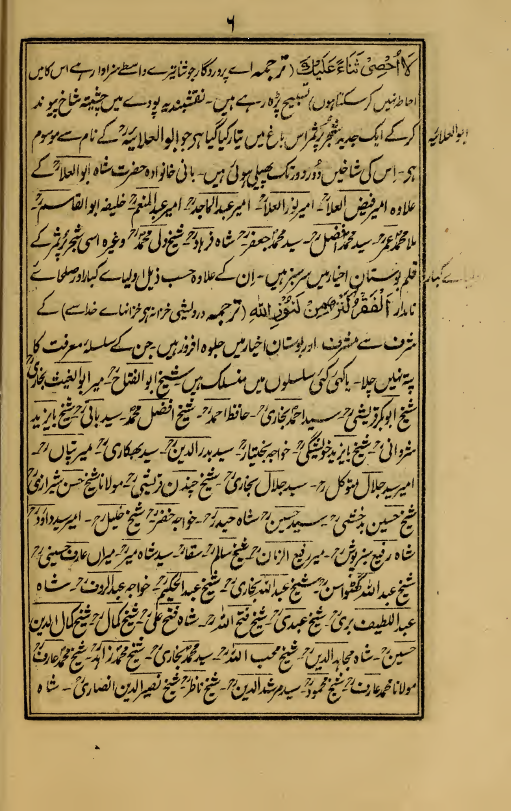 ٦
لَا اُحْصِیْ ثَنَاءً عَلَیْکَ (ترجمہ اے پروردگار جو ثنا تیرے واسطے سزاوار ہے اس کا میں
احاطہ نہیں کر سکتا ہوں) تسبیح پڑھ رہے ہیں۔ نقشبندیہ پودے میں چشتیہ شاخ پیوند
کر کے ایک جدید شجر پُرثمر اس باغ میں تیار کیا گیا ہی جو ابوالعلائیہ کے نام سے موسوم
ابوالعلائیہ
ہی۔ اس کی شاخیں دُور دور تک پھیلی ہوئی ہیں۔ بانی خانوادہ حضرت شاہ ابوالعلاؒ کے
علاوہ امیر فیض العلاؒ۔ امیر نور العلاؒ۔ امیر عبدالماجدؒ۔ امیر عبدالمنعمؒ۔ خلیفہ ابوالقاسمؒ۔
ملا محمد عمرؒ۔ سید محمد افضلؒ۔ سید محمد جعفرؒ۔ شاہ فرہادؒ۔ شیخ ولی محمدؒ وغیرہ اسی شجر پُرثمر کے
قلم بوستان اخیار میں سرسبز ہیں۔ ان کے علاوہ حسب ذیل اولیاے کبار اور صلحاے
نامدار اَلْفَقْرُ کَنْزٌ مِنْ کُنُوْزِ اللّٰہِ (ترجمہ درویشی خزانہ ہی خزانہاے خدا سے) کے
شرف سے مشرف اور بوستان اخیار میں جلوہ افروز ہیں۔ جن کے سلسلۂ معرفت کا
پتہ نہیں چلا۔ یا کئی کئی سلسلوں میں منسلک ہیں۔ شیخ ابوالفتاحؒ۔ میر ابوالغیث بخاریؒ
شیخ ابوبکر قریشیؒ۔ سید احمد بخاریؒ۔ حافظ احمدؒ۔ شیخ افضل محمدؒ۔ سید بانیؒ۔ شیخ بایزید
شروانیؒ۔ شیخ بایزید خویشگیؒ۔ خواجہ بختیارؒ۔ سید بدرالدینؒ۔ سید بھیکاریؒ۔ میر تپاںؒ۔
امیر سید جلال متوکلؒ۔ سید جلال بخاریؒ۔ شیخ چندن قریشیؒ۔ مولانا شیخ حسن شیرازیؒ
شیخ حسین بدخشیؒ۔ سید حسینؒ۔ شاہ حیدرؒ۔ خواجہ خضرؒ۔ شیخ خلیلؒ۔ امیر سید داؤدؒ
شاہ رفیع سبزپوشؒ۔ میر رفیع الزمانؒ۔ شیخ سالم سقاؒ۔ سید شاہ میرؒ۔ میراں عارف حسینیؒ
شیخ عبداللہ ؒ۔ شیخ عبداللہ بخاریؒ۔ شیخ عبدالحکیمؒ۔ خواجہ عبدالرؤفؒ۔ شاہ
عبداللطیف بریؒ۔ شیخ عبدیؒ۔ شیخ فتح اللہؒ۔ شاہ فتح علیؒ۔ شیخ کمالؒ۔ شیخ کمال الدین
حسینؒ۔ شاہ مجاہدالدینؒ۔ شیخ محب اللہؒ۔ سید محمد بخاریؒ۔ شیخ محمد زاہدؒ۔ شیخ محمد عارفؒ
مولانا محمد عارفؒ۔ شیخ محمودؒ۔ سید مرشدالدینؒ۔ شیخ ناظرؒ۔ شیخ نصیرالدین انصاریؒ۔ شاہ